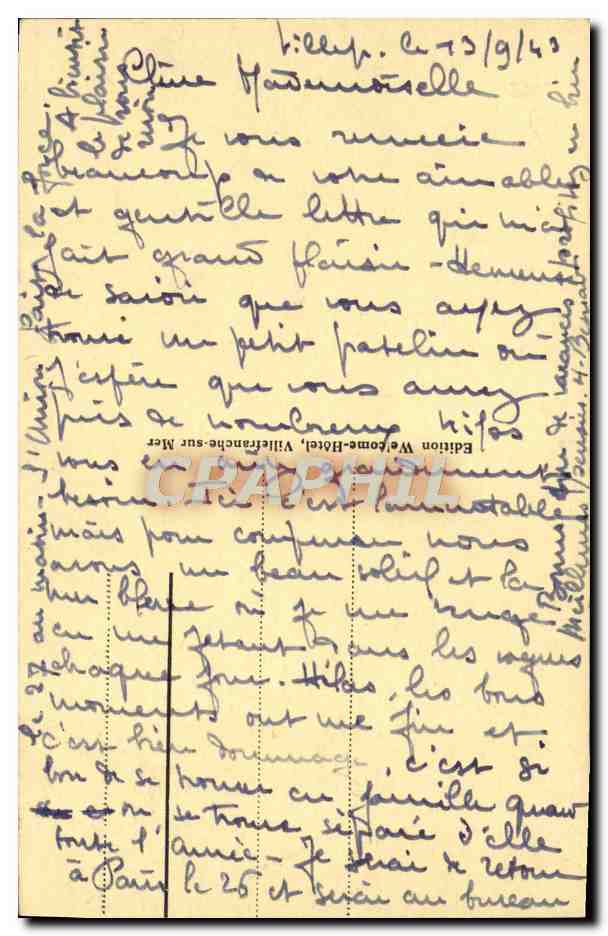 Villef. le 13/9/43
Chère Mademoiselle
Je vous remercie
beaucoup de votre aimable
et gentille lettre qui m'a
fait grand plaisir - Heureuse
de savoir que vous ayez
trouvé un petit patelin où
j'espère que vous aurez
pris de nombreux kilos
vous en avez grandement
besoin - Ici c'est
mais pour compenser nous
avons un beau soleil et la
mer bleue où je me
en me jetant dans les vagues
chaque jour. Hélas, les bons
moments ont une fin et
c'est bien dommage, c'est si
bon de se trouver en famille quand
on se trouve séparé d'elle
toute l'année - Je serai de retour
à Paris le 26 et serai au bureau
le 27 au matin - L'Union fait la force.
A bientôt
le plaisir
de vous
Edition Welcome-Hôtel, Villefranche-sur Mer
de vacances profitez en bien
CPAPHIL